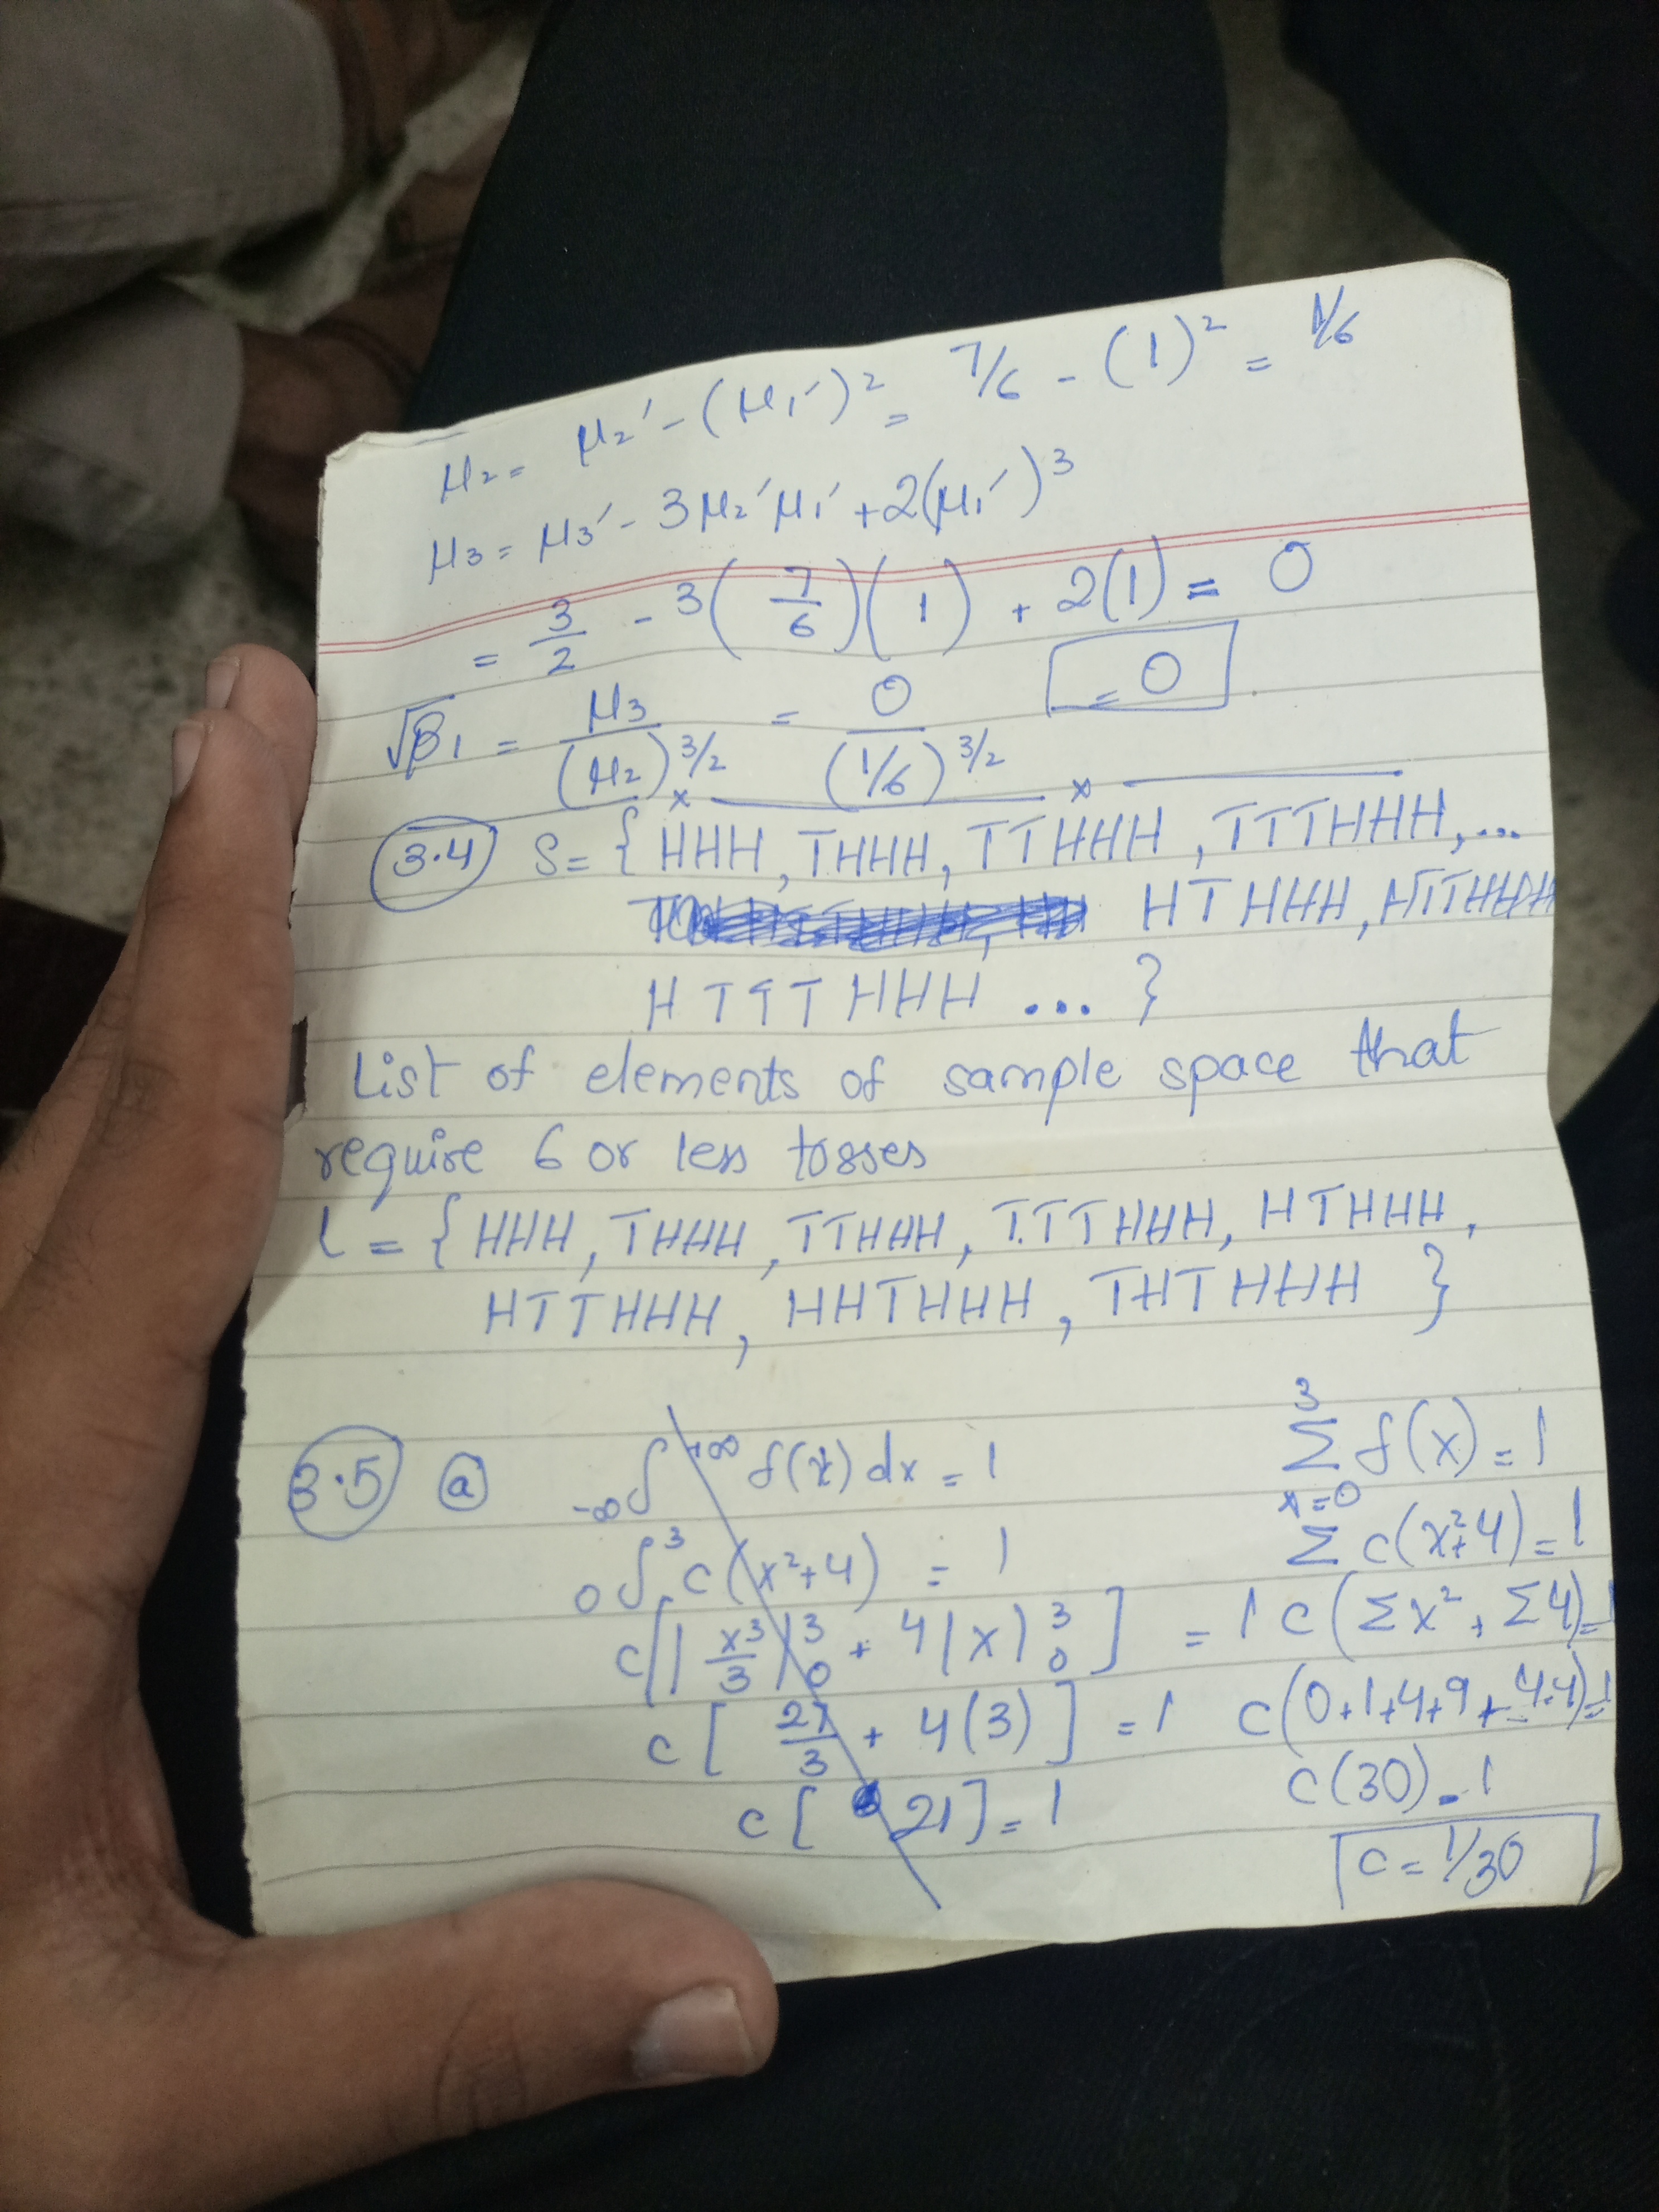 μ₂ = μ₂′ - (μ₁′)² = 7/6 - (1)² = 1/6
μ₃ = μ₃′ - 3μ₂′μ₁′ + 2(μ₁′)³
= 3/2 - 3(7/6)(1) + 2(1) = 0
√β₁ = μ₃/(μ₂)^3/2 = 0/(1/6)^3/2 = 0
3.4 S = { HHH, THHH, TTHHH, TTTHHH, ...
HTHHH, HTTHHH
HTTTHHH ... }
List of elements of sample space that
require 6 or less tosses
L = { HHH, THHH, TTHHH, TTTHHH, HTHHH,
HTTHHH, HHTHHH, THTHHH }
3.5 (a) -∞∫+∞ f(x) dx = 1
0∫3 c(x²+4) = 1
c[|x³/3|³₀ + 4|x|³₀] = 1
c[27/3 + 4(3)] = 1
c[21] = 1
3 Σ x=0 f(x) = 1
Σ c(x²+4) = 1
c(Σx² + Σ4) = 1
c(0+1+4+9+4.4) = 1
c(30) = 1
c = 1/30